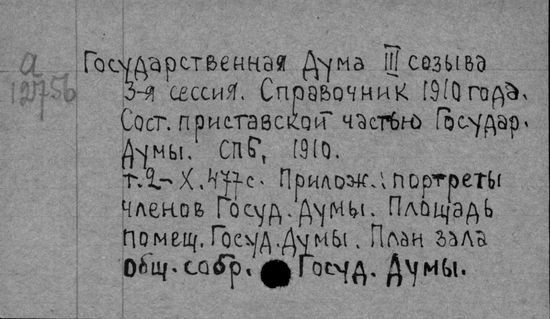 а
12756
Государственная Дума III созыва
3-я сессия. Справочник 1910 года.
Сост. приставской частью Государ.
Думы. СПб, 1910.
т.2 - X. 477 с. Прилож.: портреты
членов Госуд. Думы. Площадь
помещ. Госуд. Думы. План зала
общ. собр. Госуд. Думы.